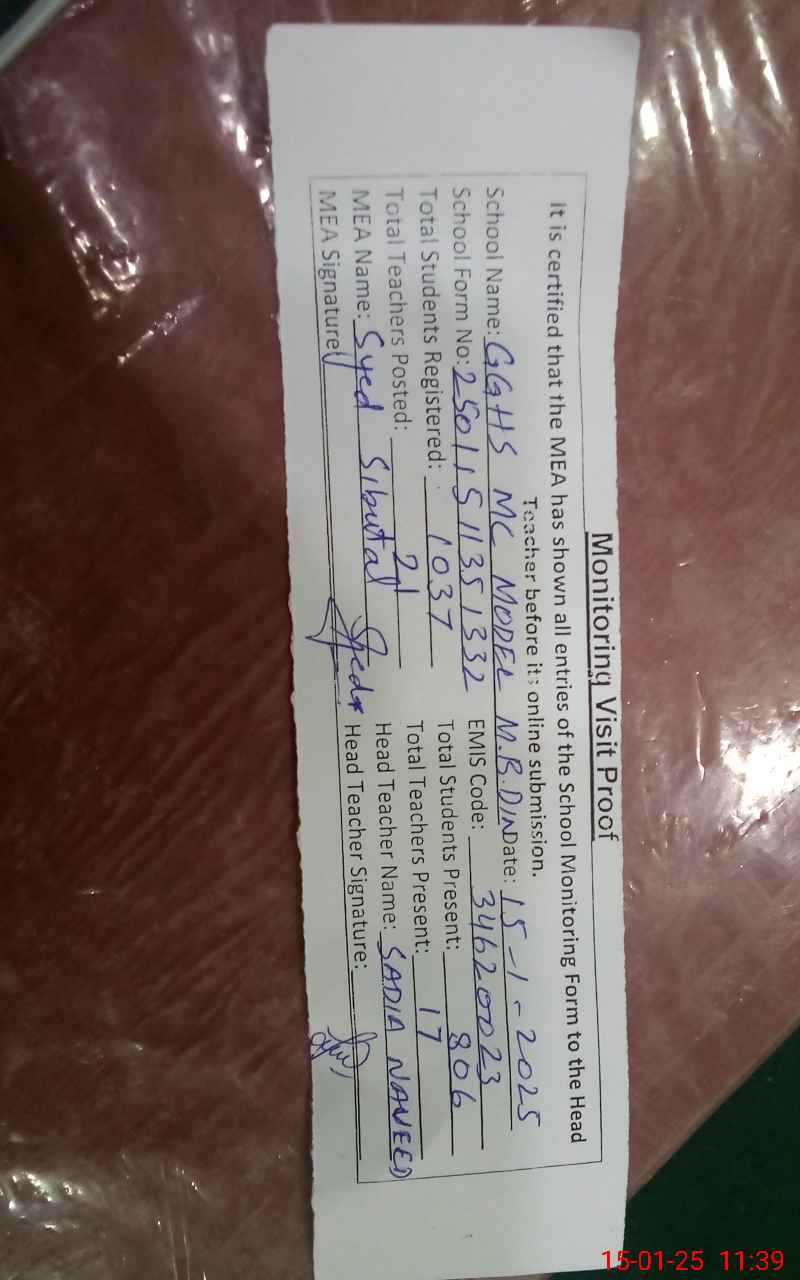 Monitoring Visit Proof
It is certified that the MEA has shown all entries of the School Monitoring Form to the Head
Teacher before its online submission.
School Name: GGHS MC MODEL M.B.DIN Date: 15-1-2025
School Form No: 25011511351332 EMIS Code: 34620023
Total Students Registered: 1037 Total Students Present: 806
Total Teachers Posted: 21 Total Teachers Present: 17
MEA Name: Syed Sibutal Head Teacher Name: SADIA NAVEED
MEA Signature Head Teacher Signature:
15-01-25 11:39